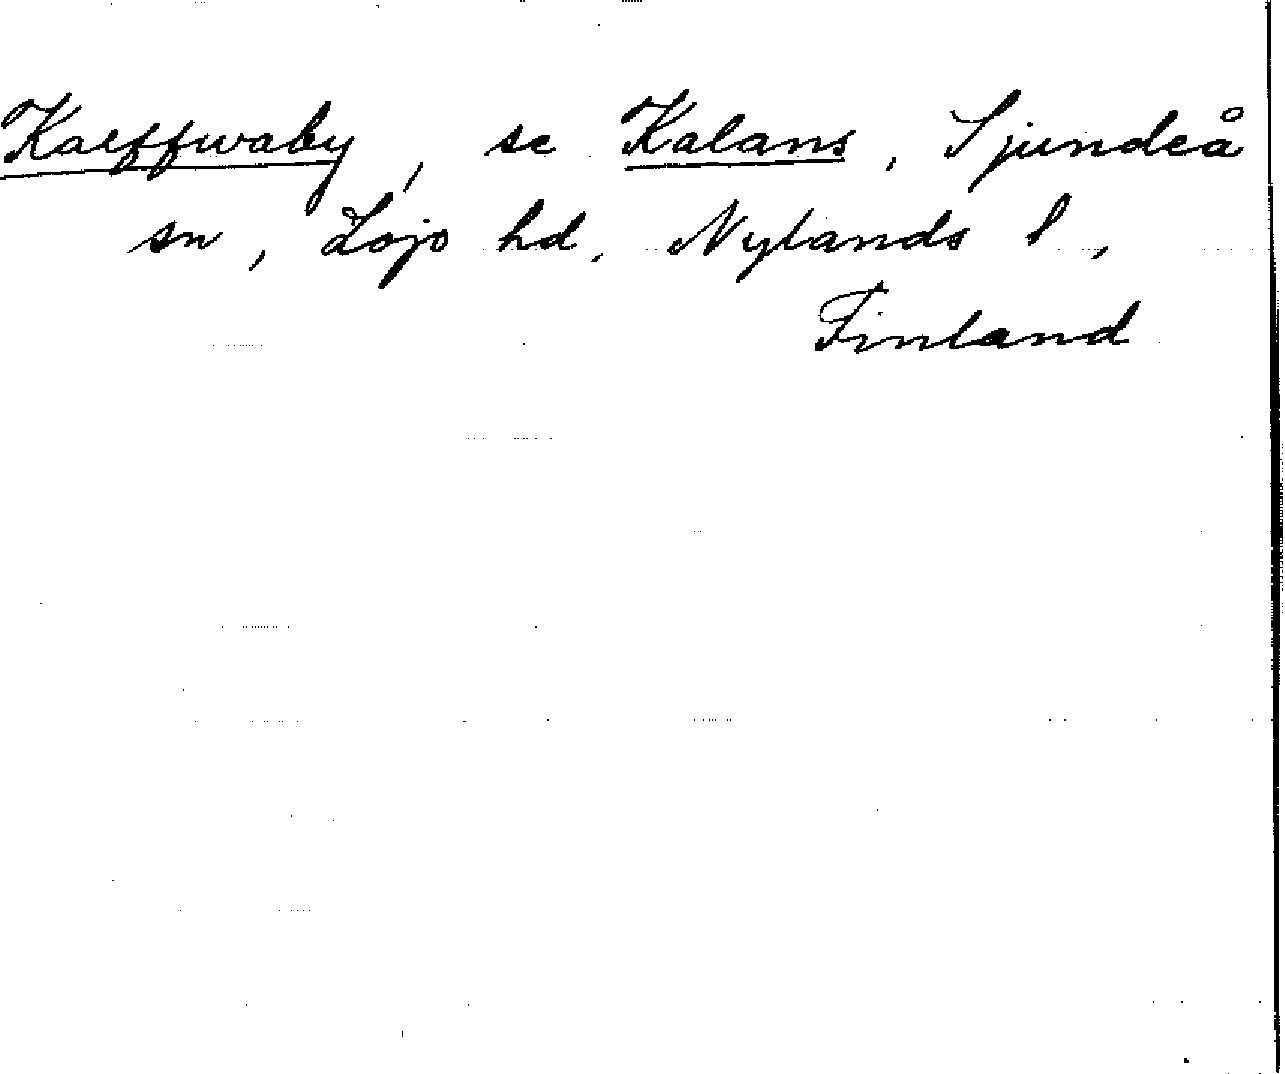 Kalffwaby, se Kalans, Sjundeå
sn, Lojo hd, Nylands l,
Finland